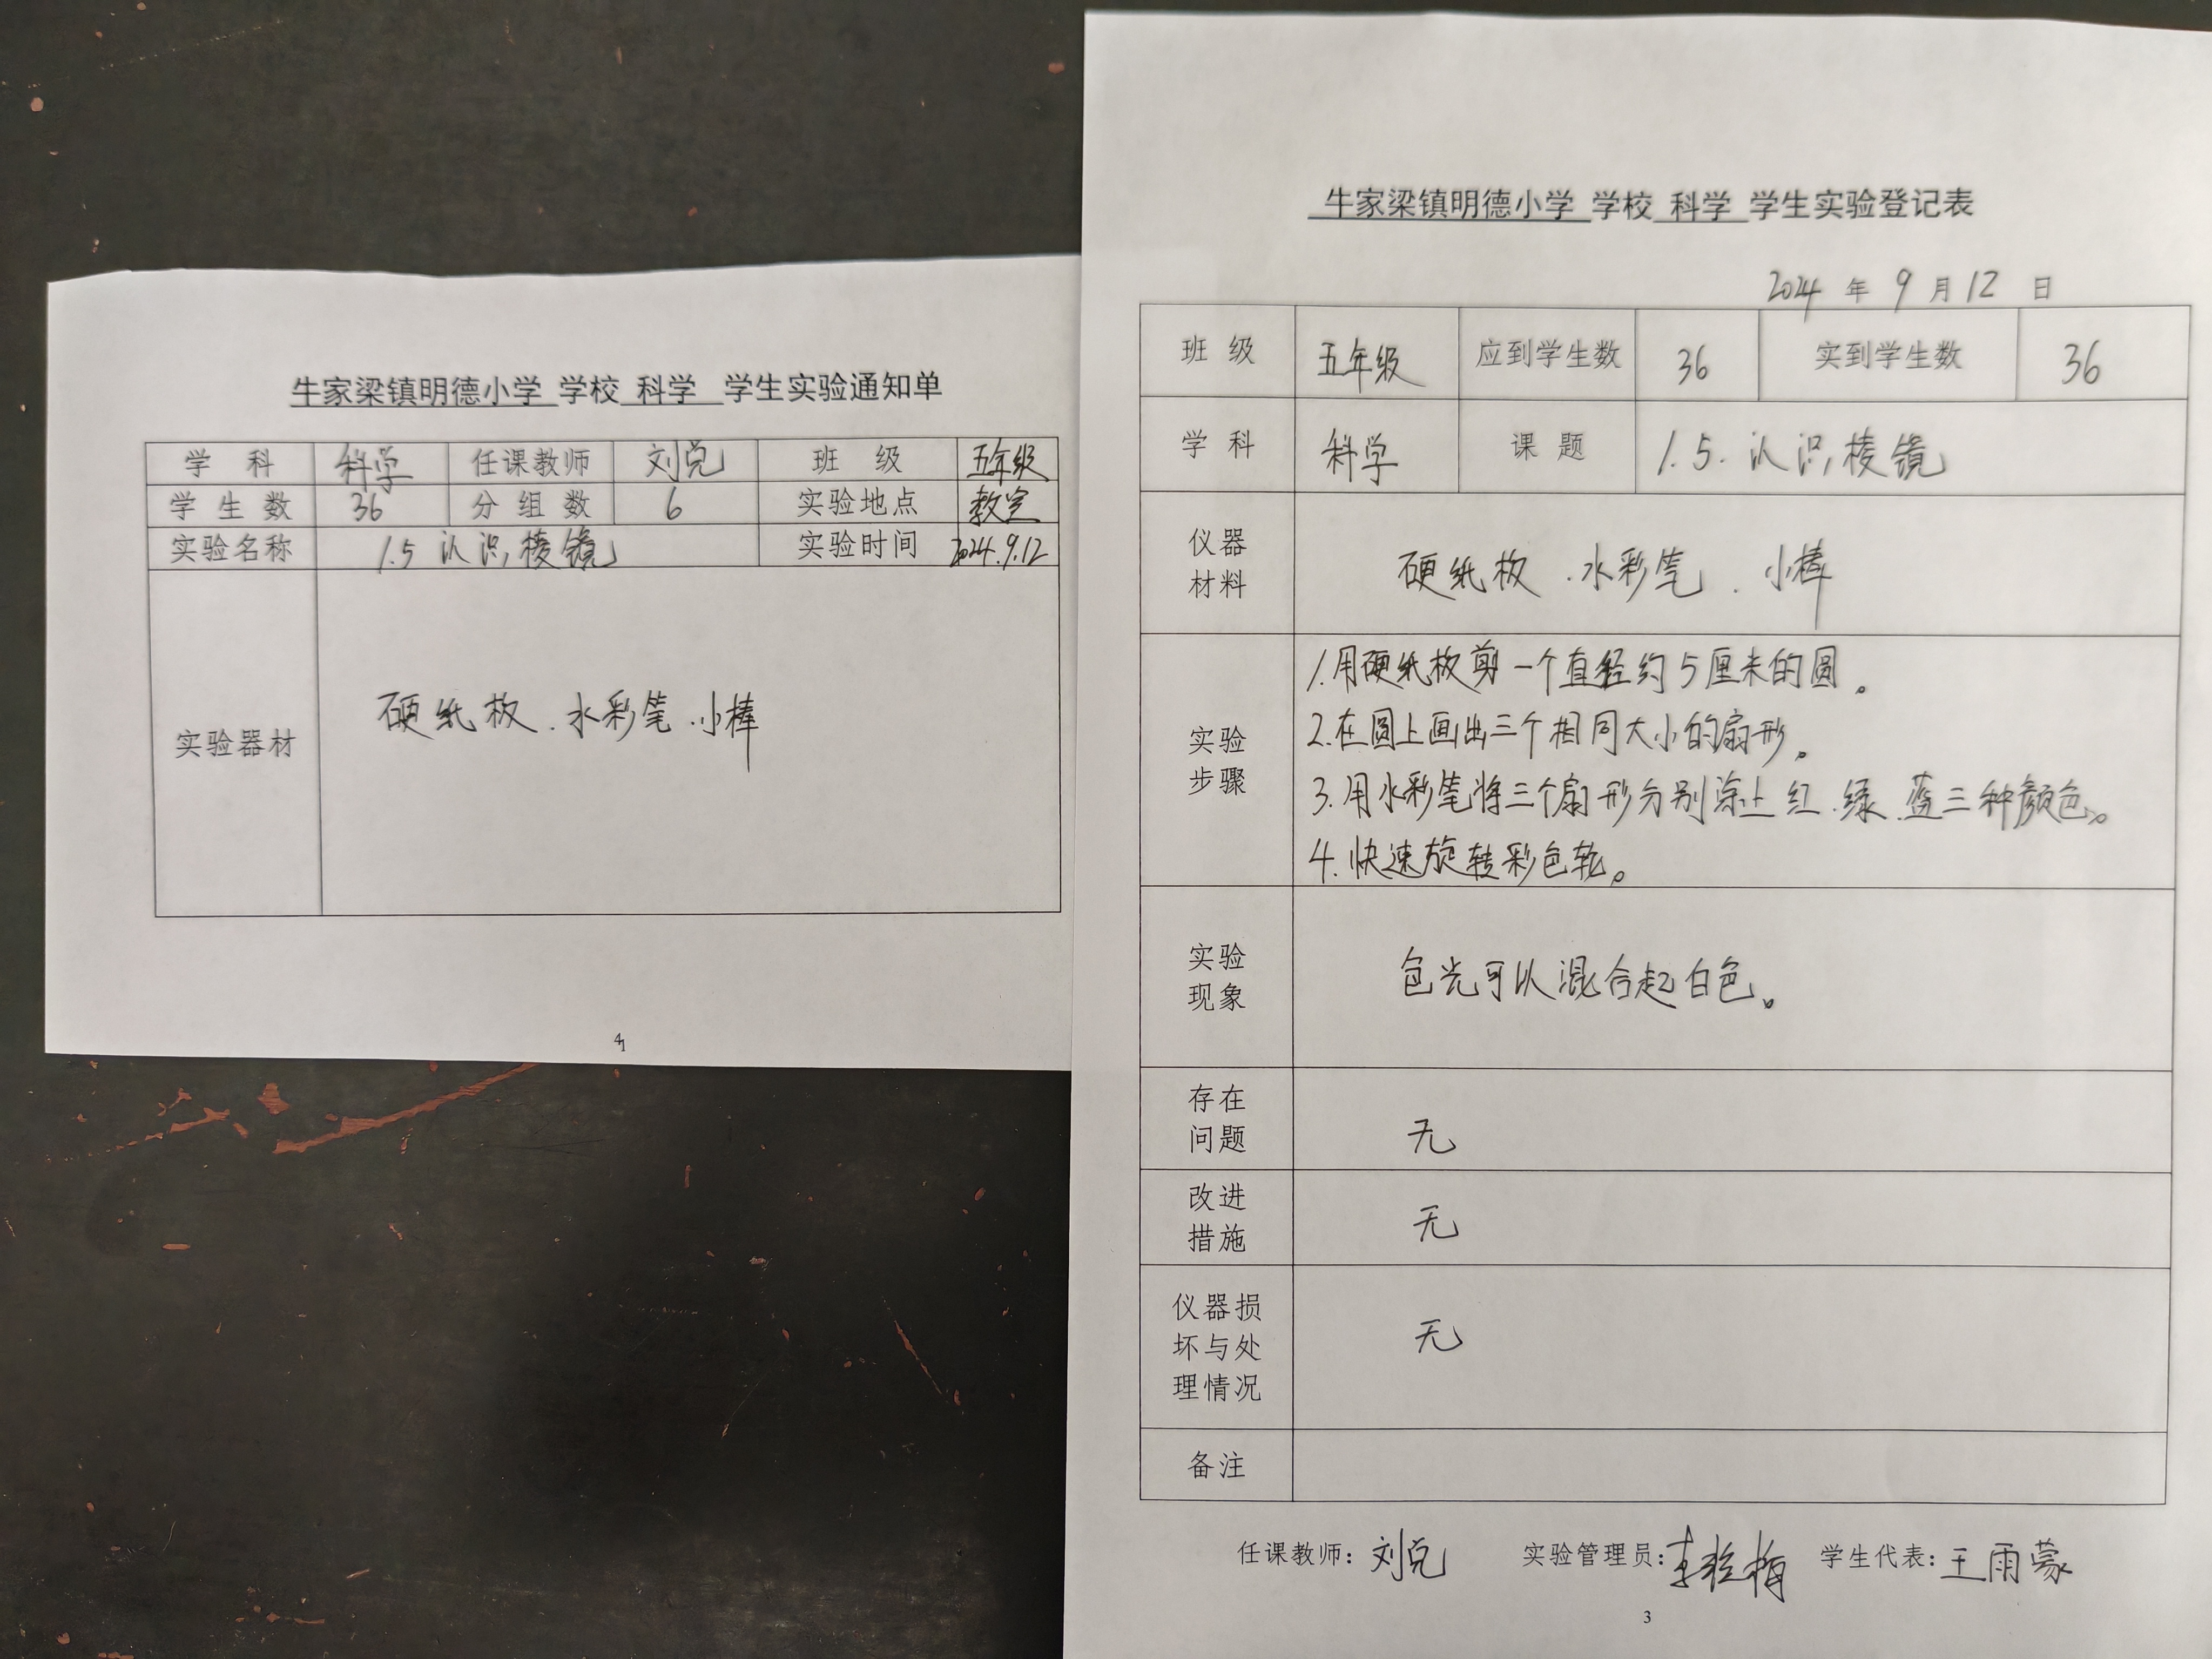 牛家梁镇明德小学 学校 科学 学生实验通知单
学 科 科学 任课教师 刘克 班 级 五年级
学 生 数 36 分 组 数 6 实验地点 教室
实验名称 1.5 认识棱镜 实验时间 2024.9.12
实验器材 硬纸板、水彩笔、小棒
牛家梁镇明德小学 学校 科学 学生实验登记表
2024 年 9 月 12 日
班 级 五年级 应到学生数 36 实到学生数 36
学 科 科学 课 题 1.5.认识棱镜
仪器
材料
硬纸板、水彩笔、小棒
实验
步骤
1.用硬纸板剪一个直径约5厘米的圆。
2.在圆上画出三个相同大小的扇形。
3.用水彩笔将三个扇形分别涂上红、绿、蓝三种颜色。
4.快速旋转彩色轮。
实验
现象
色光可以混合起白色。
存在
问题
无
改进
措施
无
仪器损
坏与处
理情况
无
备注
任课教师：刘克 实验管理员： 学生代表：王雨蒙
3